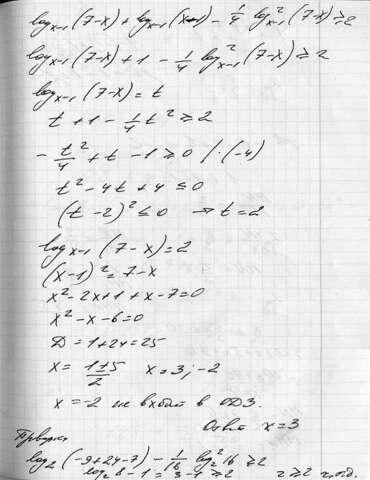 log_{x-1}(7-x) + log_{x-1}(x-1) - 1/4 log²_{x-1}(7-x) ≥ 2
log_{x-1}(7-x) + 1 - 1/4 log²_{x-1}(7-x) ≥ 2
log_{x-1}(7-x) = t
t + 1 - 1/4 t² ≥ 2
- t²/4 + t - 1 ≥ 0 /·(-4)
t² - 4t + 4 ≤ 0
(t-2)² ≤ 0 → t = 2
log_{x-1}(7-x) = 2
(x-1)² = 7-x
x² - 2x + 1 + x - 7 = 0
x² - x - 6 = 0
D = 1 + 24 = 25
x = (1±5)/2 x = 3; -2
x = -2 не входит в ОДЗ.
Ответ x = 3
Проверка
log₂(-9+24-7) - 1/16 log₂² 16 ≥ 2
log₂ 8 - 1 = 3 - 1 ≥ 2 2 ≥ 2 ч.т.д.